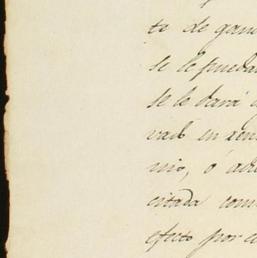 ta de gana
se le pueda
se le dará
en
nio, ó
citada com
efecto por